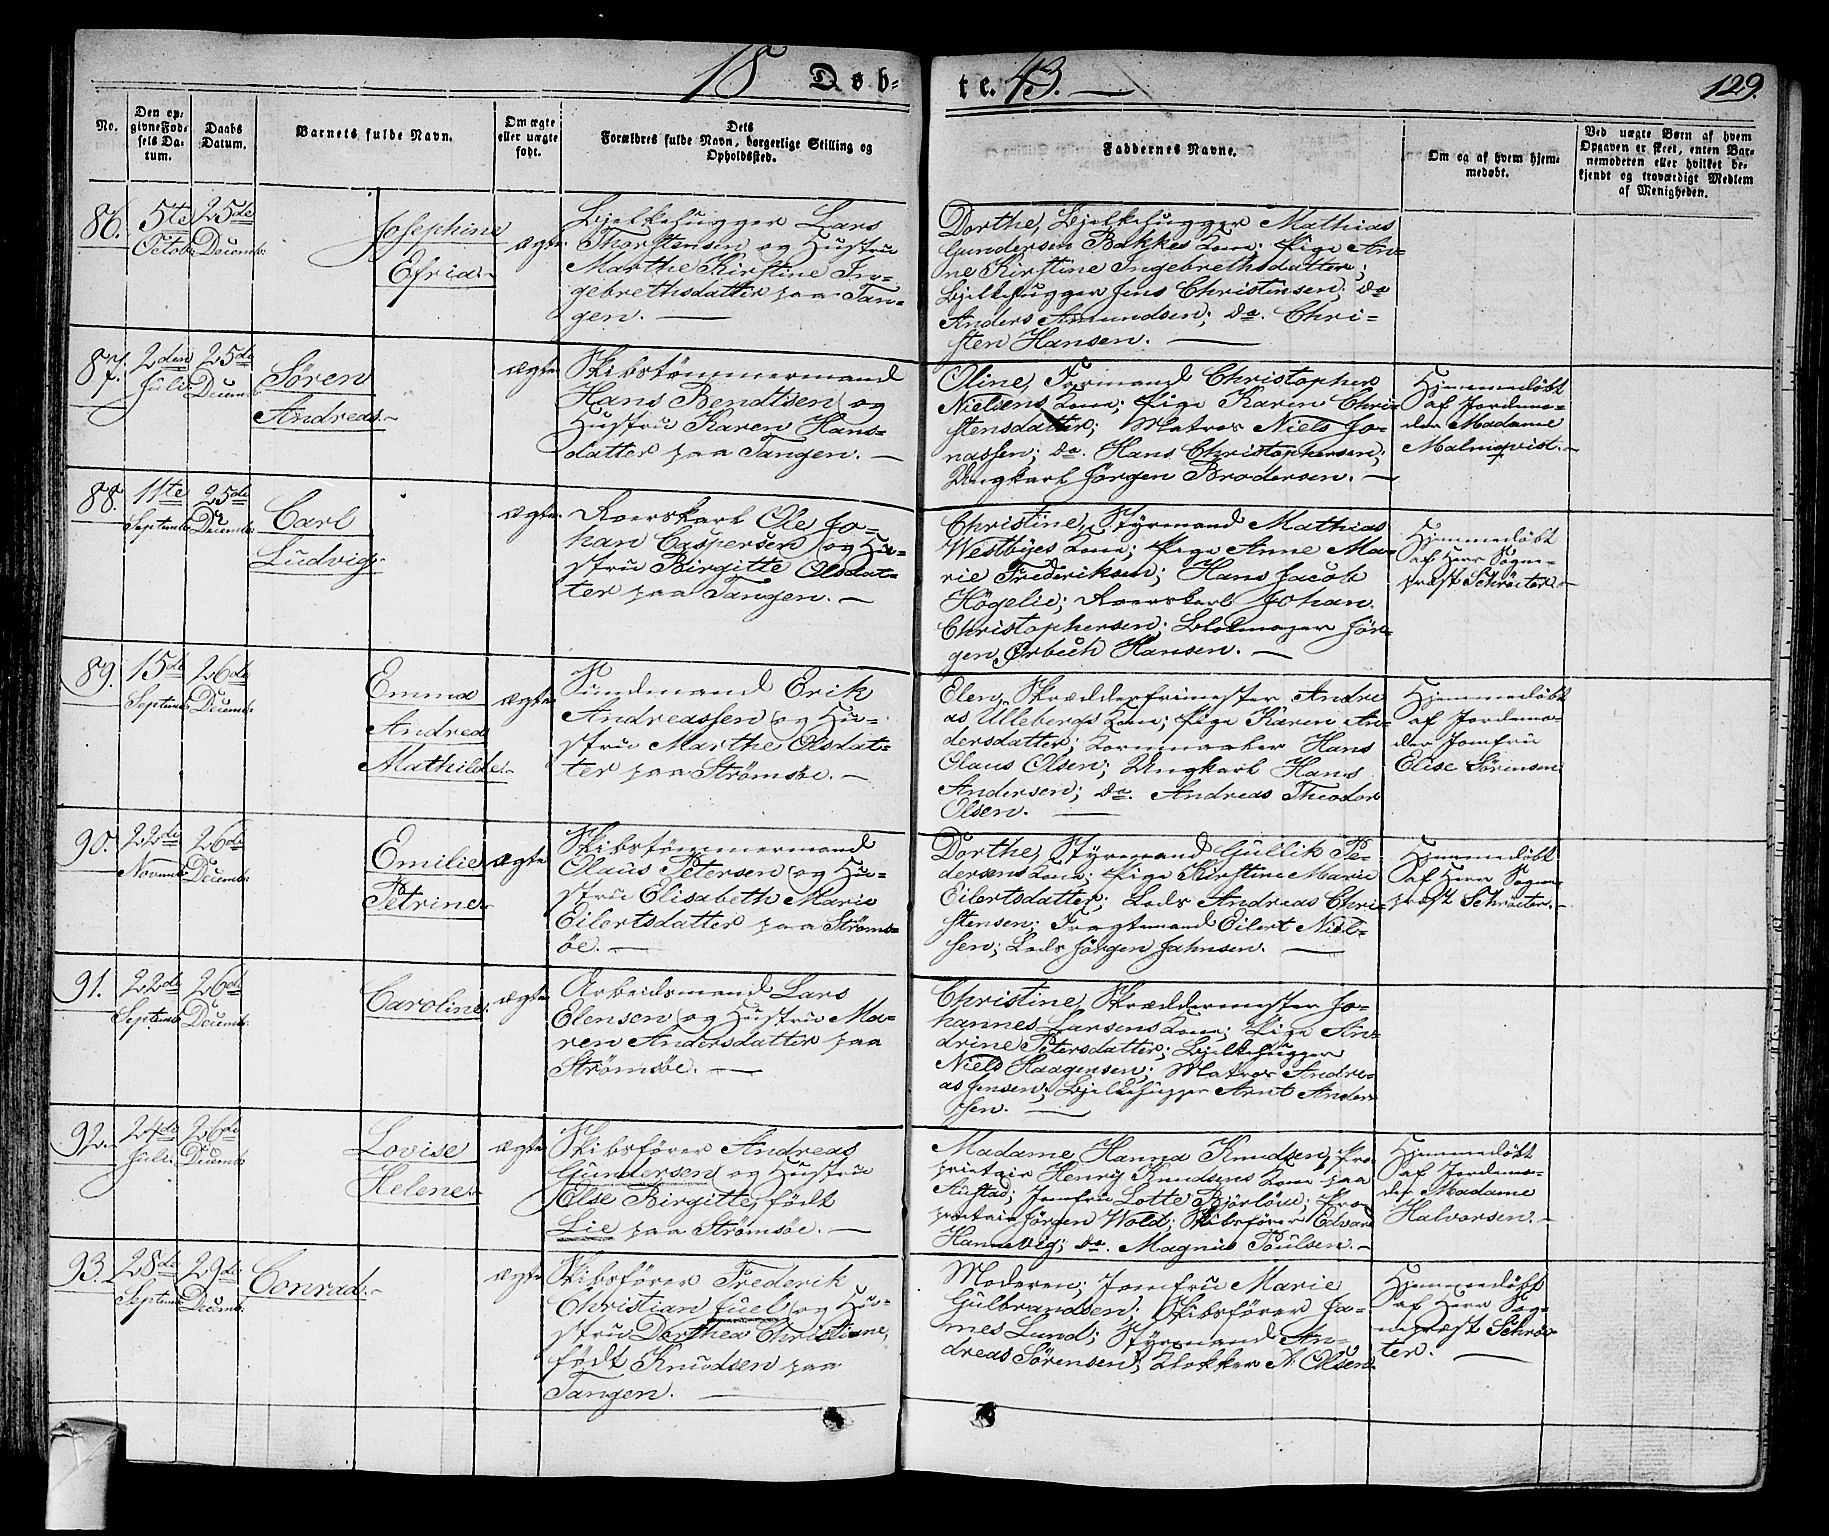 18 Døb-
te. 43. —
129.
No.
Den op-
givne Fød-
sels Da-
tum.
Daabs
Datum.
Barnets fulde Navn.
Om ægte
eller uægte
født.
Dets
Forældres fulde Navn, borgerlige Stilling og
Opholdssted.
Faddernes Navne.
Om og af hvem hjem-
medøbt.
Ved uægte Børn af hvem
Opgaven er skeet, enten Bar-
nemoderen eller hvilket be-
kjendt og troværdigt Medlem
af Menigheden.
86.
5te
Octob.
25de
Decemb.
Josephine
Efrida.
ægte
Bjelkehugger Lars
Thorstensen og Hustru
Marthe Kirstine In-
gebrethsdatter paa Tan-
gen. —
Dorthe, Bjelkehugger Mathias
Gundersen Bakkes Kone; Pige An-
ne Kirstine Ingebrethsdatter;
Bjelkehugger Jens Christensen; do
Anders Amundsen; do. Chri-
sten Hansen. —
87.
2den
Juli
25de
Decemb.
Søren
Andreas.
ægte
Skibstømmermand
Hans Bendtsen og
Hustru Karen Hans-
datter paa Tangen. —
Oline, Formand Christopher
Nielsens Kone; Pige Karen Chri-
stensdatter; Matros Niels Jo-
nassen; do. Hans Christophersen;
Ungkarl Jørgen Brodersen. —
Hjemmedøbt
af Jordemo-
der Madame
Malmqvist. —
88.
11te
Septemb.
25de
Decemb.
Carl
Ludvig.
ægte
Roerskarl Ole Jo-
han Caspersen og Hu-
stru Birgitte Olsdat-
ter paa Tangen. —
Christine, Styrmand Mathias
Westbyes Kone; Pige Anne Ma-
rie Frederiksen; Hans Jacob
Høgelie; Roerskarl Johan
Christophersen; Blokmager Jør-
gen Ørbech Hansen. —
Hjemmedøbt
af Herr Sogne-
præst Schrøeter. —
89.
15de
Septemb.
26de
Decemb.
Emma
Andrea
Mathilde.
ægte
Sundmand Erik
Andreassen og Hu-
stru Marthe Olsdat-
ter paa Strømsøe. —
Elen, Skrædderfrimester Andre
as Ullebergs Kone; Pige Karen An-
dersdatter; Kornmaaler Hans
Olaus Olsen; Ungkarl Hans
Andersen; do. Andreas Theodor
Olsen. —
Hjemmedøbt
af Jordemo-
der Jomfru
Elise Sørensen.
90.
22de
Novemb.
26de
Decemb.
Emilie
Petrine.
ægte
Skibstømmermand
Olaus Petersen og Hu-
stru Elisabeth Marie
Eilertsdatter paa Strøms-
øe. —
Dorthe, Styrmand Gullik Pe-
dersens Kone; Pige Kirstine Marie
Eilertsdatter; Lods Andreas Chri-
stensen; Fragtemand Eilert Niel-
sen; Lods Jørgen Jahnsen. —
Hjemmedøbt
af Herr Sogne-
præst Schrøeter. —
91.
22de
Septemb.
26de
Decemb.
Caroline.
ægte
Arbeidsmand Lars
Elensen og Hustru Ma-
ren Andersdatter paa
Strømsøe. —
Christine, Skræddermester Jo-
hannes Larsens Kone; Pige An-
drine Petersdatter; Bjelkehugger
Niels Haagensen; Matros Andre-
as Jensen; Bjelkehugger Arnt Ander-
sen. —
92.
24de
Juli
26de
Decemb.
Lovise
Helene.
ægte
Skibsfører Andreas
Gundersen og Hustru
Else Birgitte, født
Lie paa Strømsøe. —
Madame Hanna Knudsen, Pro-
prietair Henrÿ Knudsens Kone paa
Austad; Jomfru Lotte Bjørløw; Pro-
prietair Jørgen Wold; Skibsfører Edvard
Hannevig; do. Magnus Poulsen. —
Hjemmedøbt
af Jordemo-
der Madame
Halvorsen. —
93.
28de
Septemb.
29de
Decemb.
Conrad.
ægte
Skibsfører Frederik
Christian Juel og Hu-
stru Dorthea Christiane,
født Knudsen paa
Tangen. —
Moderen; Jomfru Marie
Gulbrandsen; Skibsfører Ja-
mes Lund; Styrmand An-
dreas Sørensen; Klokker A. Olsen.
Hjemmedøbt
af Herr Sog-
nepræst Schrøe-
ter. —